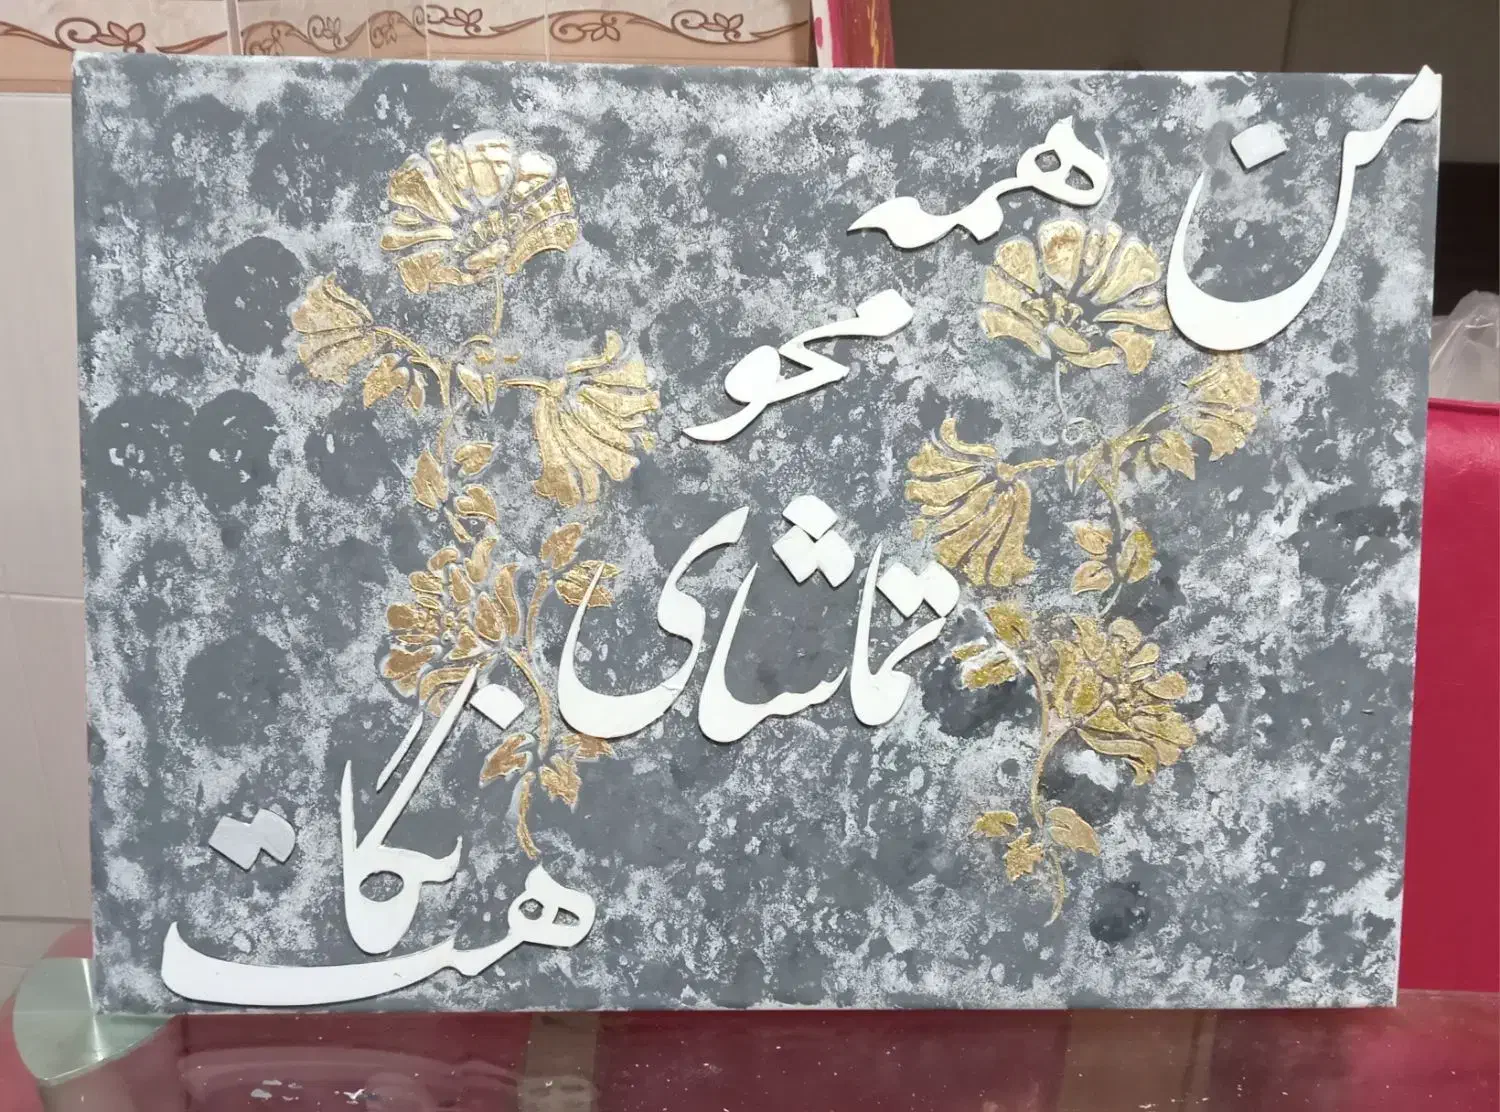 من
همه
محو
تماشای
نگاهت